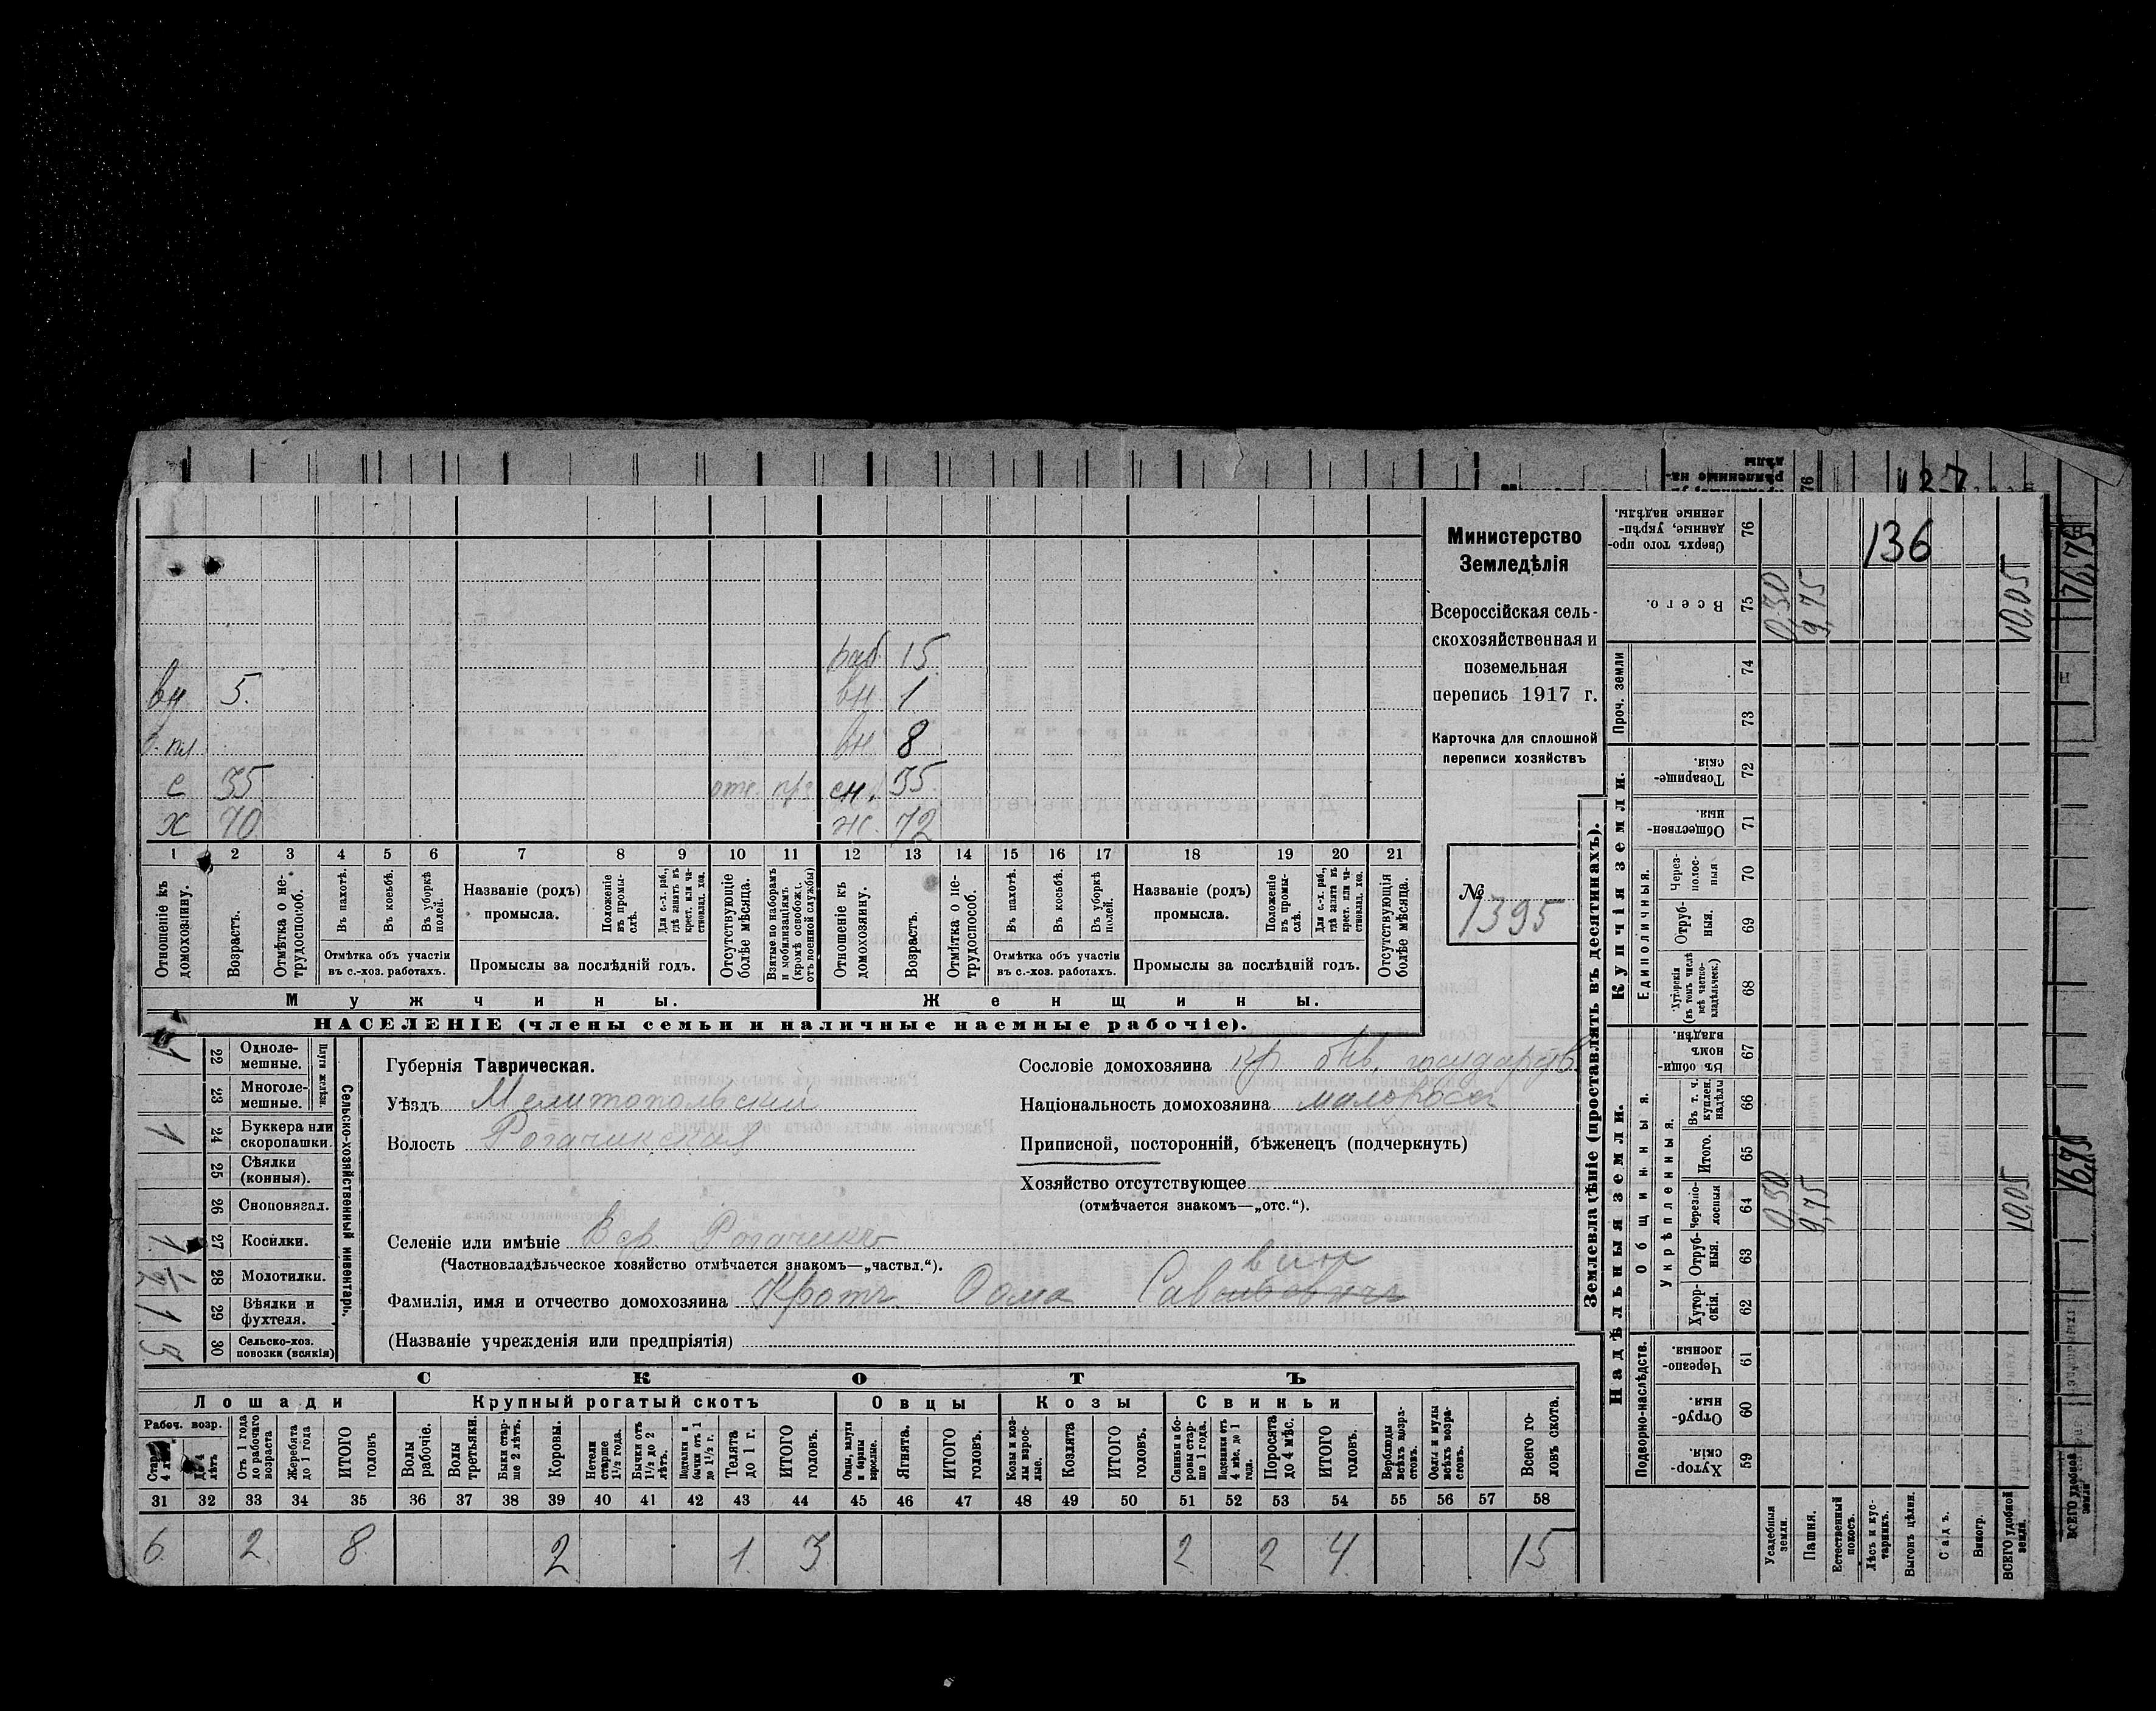 136
Министерство
Земледѣлія
Всероссійская сель-
скохозяйственная и
поземельная
перепись 1917 г.
Карточка для сплошной
переписи хозяйствъ
№
1395
раб. 15
вн 5. вн. 1
в. пл вн 8
с 35 отс. сн. 35
х 70 ж. 72
1 2 3 4 5 6 7 8 9 10 11 12 13 14 15 16 17 18 19 20 21
Отношеніе къ домохозяину.
Возрастъ.
Отмѣтка о не-трудоспособ.
Въ пахотѣ.
Въ косьбѣ.
Въ уборкѣ полей.
Отмѣтка объ участіи
въ с.-хоз. работахъ.
Названіе (родъ)
промысла.
Положеніе въ промы-слѣ.
Для с.-х. раб., гдѣ занятъ въ крест. или ча-стновлад. хоз.
Промыслы за послѣдній годъ.
Отсутствующіе болѣе мѣсяца.
Взятые по наборамъ и мобилизаціямъ (кромѣ освобожд. отъ военной службы)
Отношеніе къ домохозяину.
Возрастъ.
Отмѣтка о не-трудоспособ.
Въ пахотѣ.
Въ косьбѣ.
Въ уборкѣ полей.
Отмѣтка объ участіи
въ с.-хоз. работахъ.
Названіе (родъ)
промысла.
Положеніе въ промы-слѣ.
Для с.-х. раб., гдѣ занята въ крест. или ча-стновлад. хоз.
Промыслы за послѣдній годъ.
Отсутствующія болѣе мѣсяца.
Мужчины. Женщины.
НАСЕЛЕНІЕ (члены семьи и наличные наемные рабочіе).
Сельско-хозяйственный инвентарь.
Плуги желѣзн.
1 22 Одноле-мешные.
23 Многоле-мешные.
1 24 Буккера или скоропашки.
25 Сѣялки (конныя).
26 Сноповязал.
1 27 Косилки.
1/2 28 Молотилки.
1 29 Вѣялки и фухтеля.
5 30 Сельско-хоз. повозки (всякія)
Губернія Таврическая.
Уѣздъ Мелитопольскій
Волость Рогачикская
Сословіе домохозяина кр. быв. государств.
Національность домохозяина малороссъ
Приписной, посторонній, бѣженецъ (подчеркнуть)
Хозяйство отсутствующее
(отмѣчается знакомъ—„отс.“).
Селеніе или имѣніе Вер Рогачикъ
(Частновладѣльческое хозяйство отмѣчается знакомъ—„частвл.“).
вич
Фамилія, имя и отчество домохозяина Кротъ Ѳома Савельевичъ
(Названіе учрежденія или предпріятія)
СКОТЪ
Лошади Крупный рогатый скотъ Овцы Козы Свиньи
Рабоч. возр.
Старше 4 лѣтъ
До 4 лѣтъ
Отъ 1 года до рабочаго возраста
Жеребята до 1 года
ИТОГО головъ
Волы рабочіе.
Волы третьяки.
Быки стар-ше 2 лѣтъ.
Коровы.
Нетели старше 1½ года.
Бычки отъ 1½ до 2 лѣтъ.
Подтелки и бычки отъ 1 до 1½ г.
Телята до 1 г.
ИТОГО головъ.
Овцы, валухи и бараны взрослые.
Ягнята.
ИТОГО головъ.
Козы и коз-лы взрос-лые.
Козлята
ИТОГО головъ.
Свиньи и бо-ровы стар-ше 1 года.
Подсвинки отъ 4 мѣс. до 1 года.
Поросята до 4 мѣс.
ИТОГО головъ.
Верблюды всѣхъ возра-стовъ.
Ослы и мулы всѣхъ возра-стовъ.
Всего го-ловъ скота.
31 32 33 34 35 36 37 38 39 40 41 42 43 44 45 46 47 48 49 50 51 52 53 54 55 56 57 58
6 2 8 2 1 3 2 2 4 15
Землевладѣніе (проставлять въ десятинахъ).
Надѣльныя земли.
Купчія земли.
Проч. земли
Подворно-наслѣдств.
Общинныя.
Укрѣпленныя.
Единоличныя.
Хутор-скія. 59
Отруб-ныя. 60
Черезпо-лосныя. 61
Хутор-скія. 62
Отруб-ныя. 63
Черезпо-лосныя 64 0,30 9,75 10,05
Итого. 65
Въ т. ч. куплен. надѣлы 66
Въ общин-номъ владѣн. 67
Хуторскія (въ томъ числѣ всѣ частно-владѣльческ.) 68
Отруб-ныя. 69
Через-полос-ныя 70
Обществен-ныя. 71
Товарище-скія. 72
73
74
Всего. 75 0,30 9,75 10,05
Сверхъ того про-данные, укрѣп-ленные надѣлы. 76
Усадебныя земли.
Пашня.
Естественный покосъ.
Лѣсъ и кус-тарникъ.
Выгонъ цѣлин.
Садъ.
Виногр.
ВСЕГО удобной земли.
16,75
16,75
ВСЕГО удобной земли